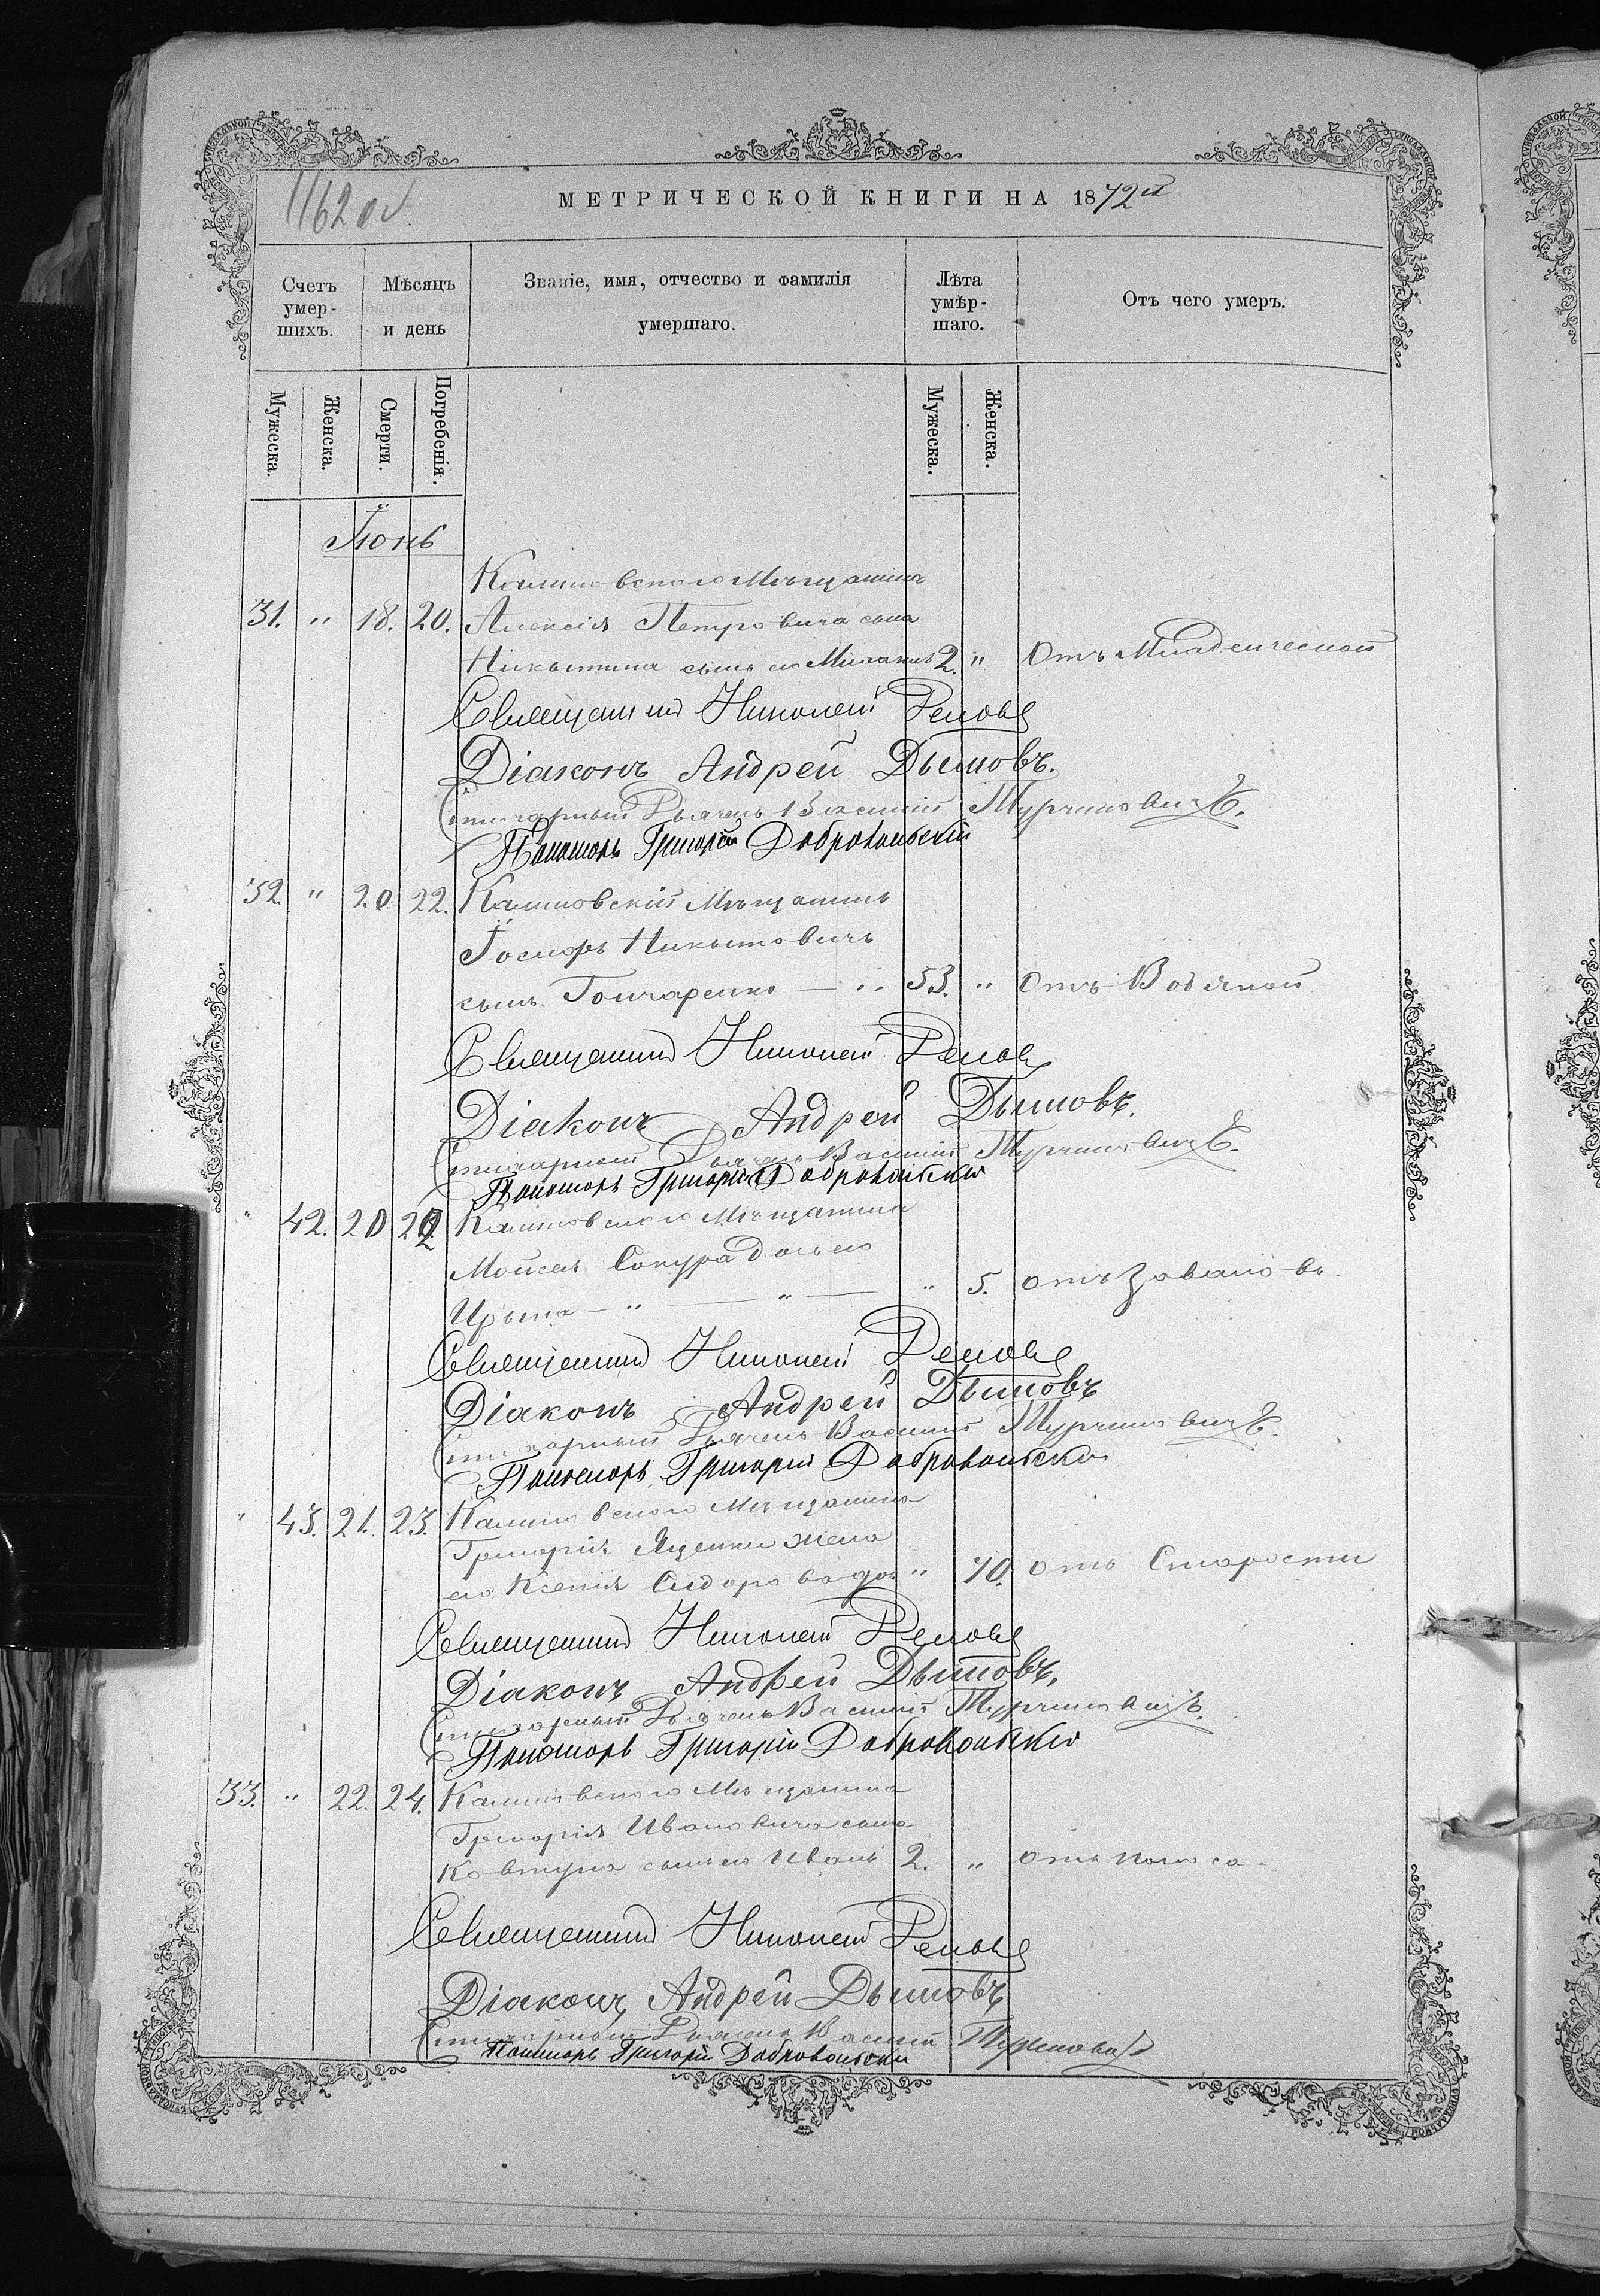 1162 об
МЕТРИЧЕСКОЙ КНИГИ НА 1872й
Счетъ умер-шихъ. Мѣсяцъ и день Званіе, имя, отчество и фамилія умершаго. Лѣта умѣр-шаго. Отъ чего умеръ.
Мужеска. Женска. Смерти. Погребенія. Мужеска. Женска.
Іюнь
Мѣщанина
31. " 18. 20. Алексія Петровича сына
Никитина сынъ его 2. " Отъ Младенческой
Священникъ Николай
Діаконъ Андрей Дымовъ.
Стихарный Дьячекъ Василій
Пономарь Григорій Добровольскій
32. " 20. 22. Мѣщанинъ
Іосифъ Никитовичъ
сынъ Гончаренко — " 53. " Отъ Водяной
Священникъ Николай
Діаконъ Андрей Дымовъ.
Стихарный Дьячекъ Василій
Пономарь Григорій Добровольскій
" 42. 20 22 Мѣщанина
Мойсея Сокура Дочь его
Ирина — " — " — " 5. отъ
Священникъ Николай
Діаконъ Андрей Дымовъ
Стихарный Дьячекъ Василій
Пономарь Григорій Добровольскій
" 43. 21. 23. Мѣщанина
Григорія Яценки жена
его Ксенія Сидорова " 70. отъ Старости
Священникъ Николай
Діаконъ Андрей Дымовъ.
Стихарный Дьячекъ Василій
Пономарь Григорій Добровольскій
33. " 22. 24. Мѣщанина
Григорія Ивановича сына
Ковтуна сынъ его Иванъ 2. " отъ поноса
Священникъ Николай
Діаконъ Андрей Дымовъ
Стихарный Дьячекъ Василій
Пономарь Григорій Добровольскій